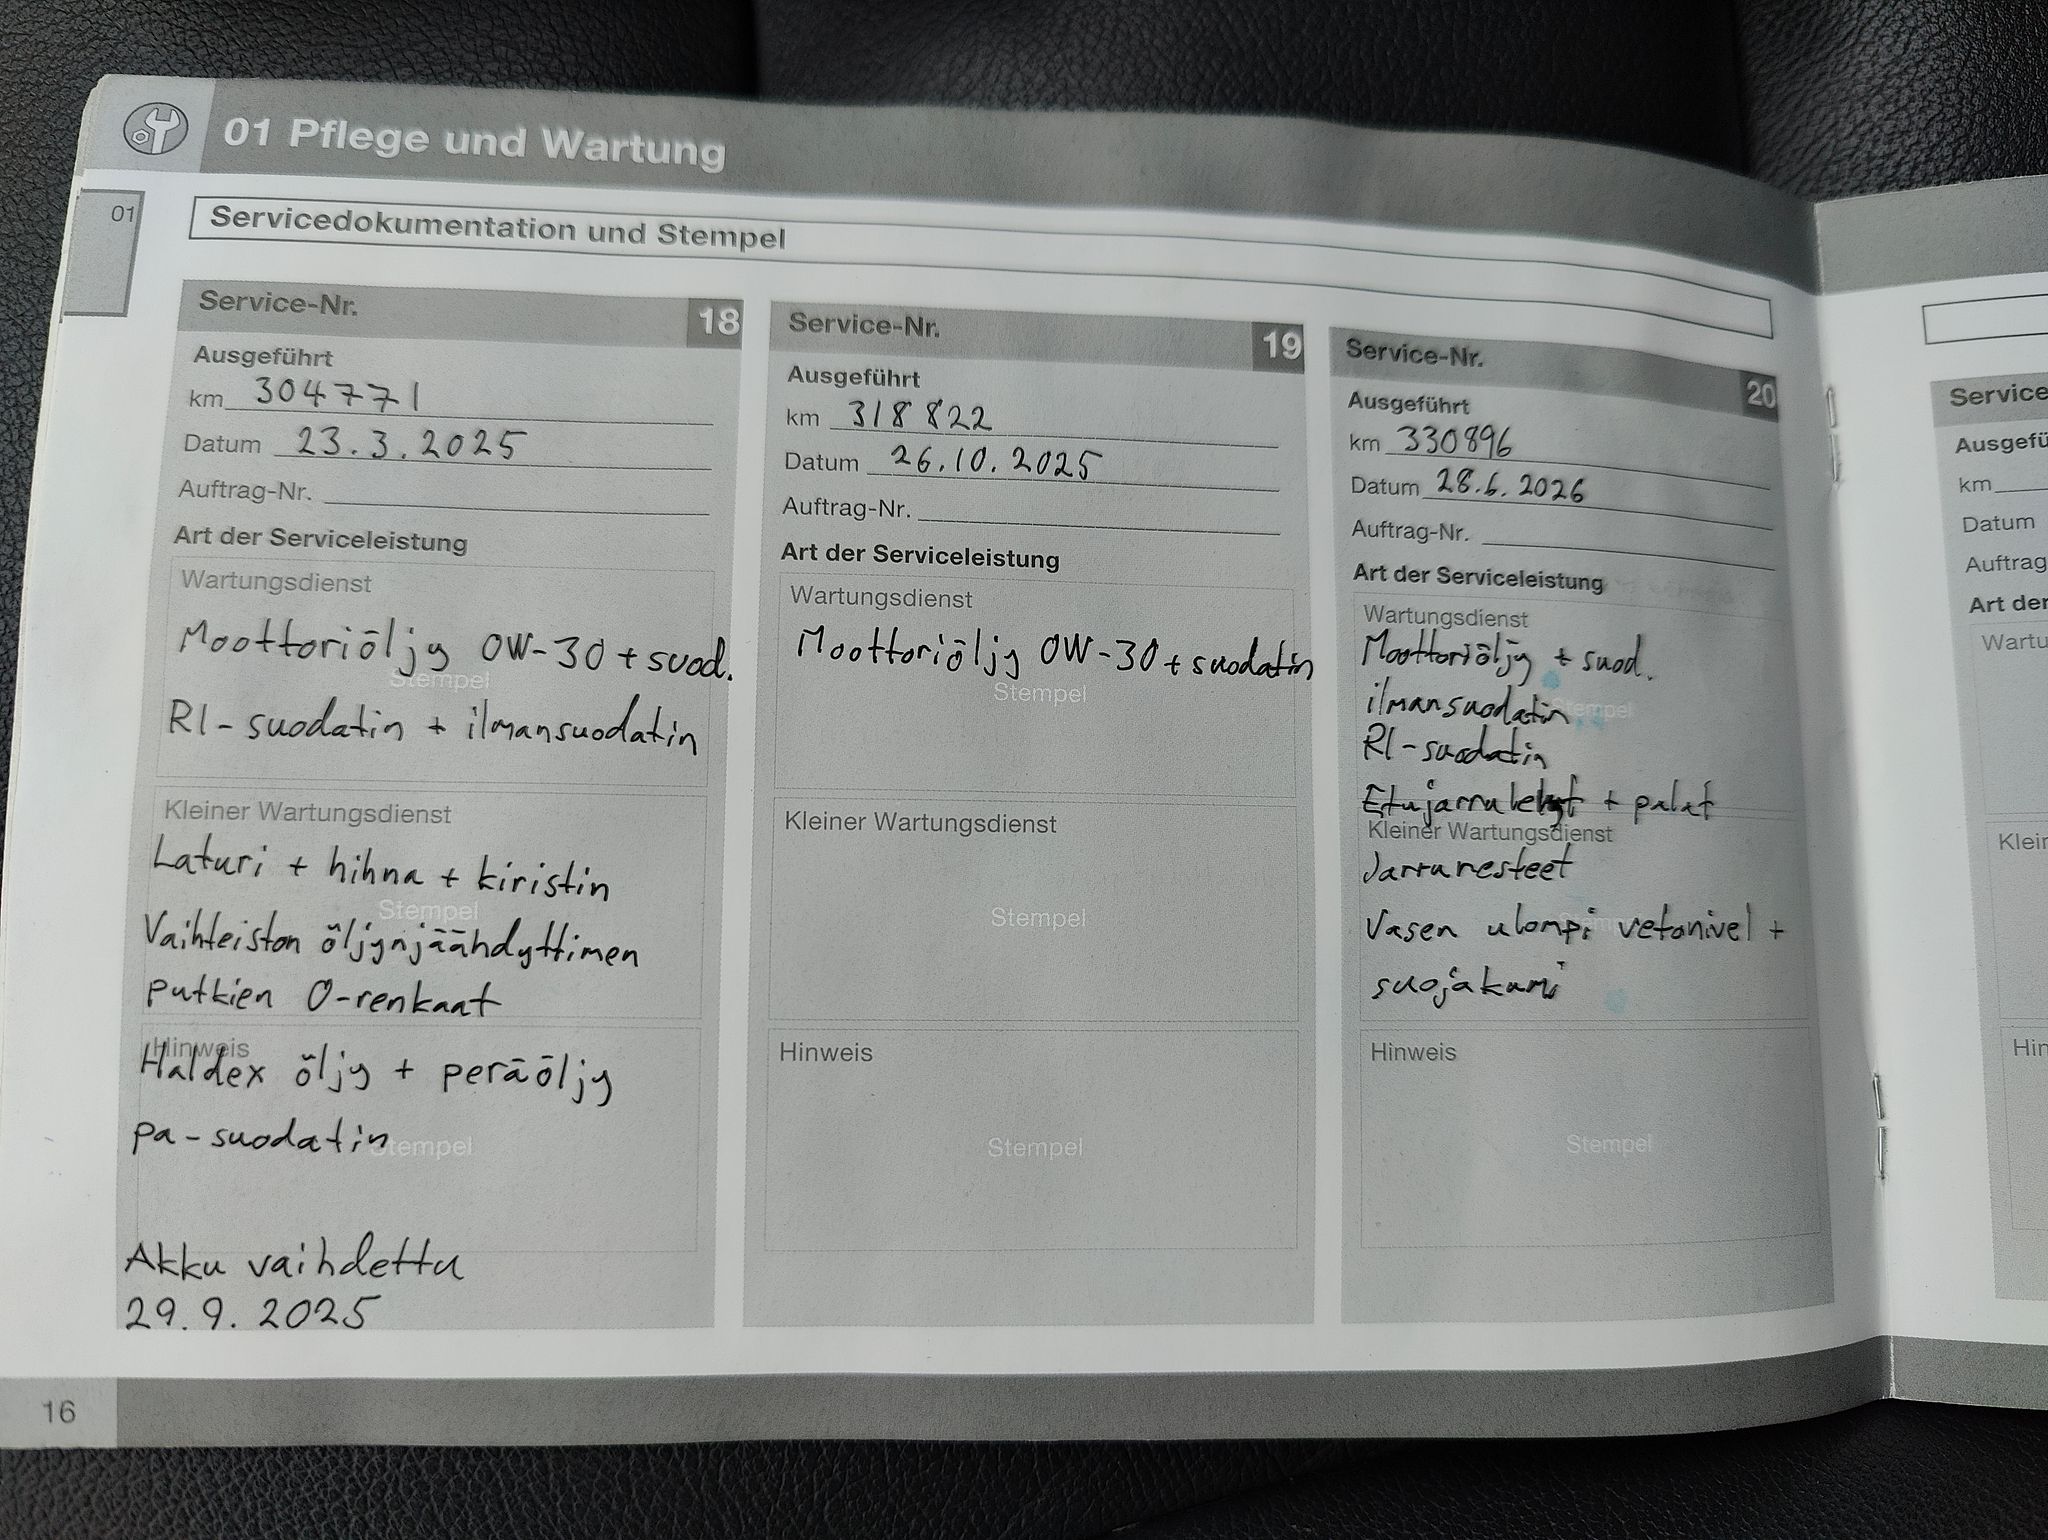 01 Pflege und Wartung
01
Servicedokumentation und Stempel
Service-Nr. 18
Ausgeführt
km 304771
Datum 23.3.2025
Auftrag-Nr.
Art der Serviceleistung
Wartungsdienst
Moottoriöljy 0W-30 + suod.
Stempel
RI-suodatin + ilmansuodatin
Kleiner Wartungsdienst
Laturi + hihna + kiristin
Stempel
Vaihteiston öljynjäähdyttimen
putkien O-renkaat
Hinweis
Haldex öljy + peräöljy
pa-suodatin
Stempel
Akku vaihdettu
29.9.2025
Service-Nr. 19
Ausgeführt
km 318822
Datum 26.10.2025
Auftrag-Nr.
Art der Serviceleistung
Wartungsdienst
Moottoriöljy 0W-30 + suodatin
Stempel
Kleiner Wartungsdienst
Stempel
Hinweis
Stempel
Service-Nr. 20
Ausgeführt
km 330896
Datum 28.6.2026
Auftrag-Nr.
Art der Serviceleistung
Wartungsdienst
Moottoriöljy + suod.
Stempel
ilmansuodatin
RI-suodatin
Etujarrulevyt + palat
Kleiner Wartungsdienst
Jarrunesteet
Stempel
Vasen ulompi vetonivel +
suojakumi
Hinweis
Stempel
16
Service
Ausgefü
km
Datum
Auftrag
Art der
Wartu
Klein
Hin